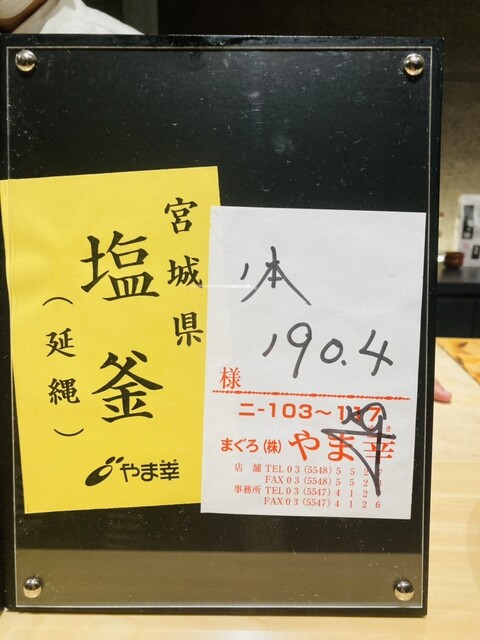 宮城県
塩釜
（延縄）
やま幸
1本
190.4
様
ニ-103〜117
まぐろ(株)やま幸
店舗 TEL03(5548)552
FAX03(5548)552
事務所 TEL03(5547)412
FAX03(5547)4126